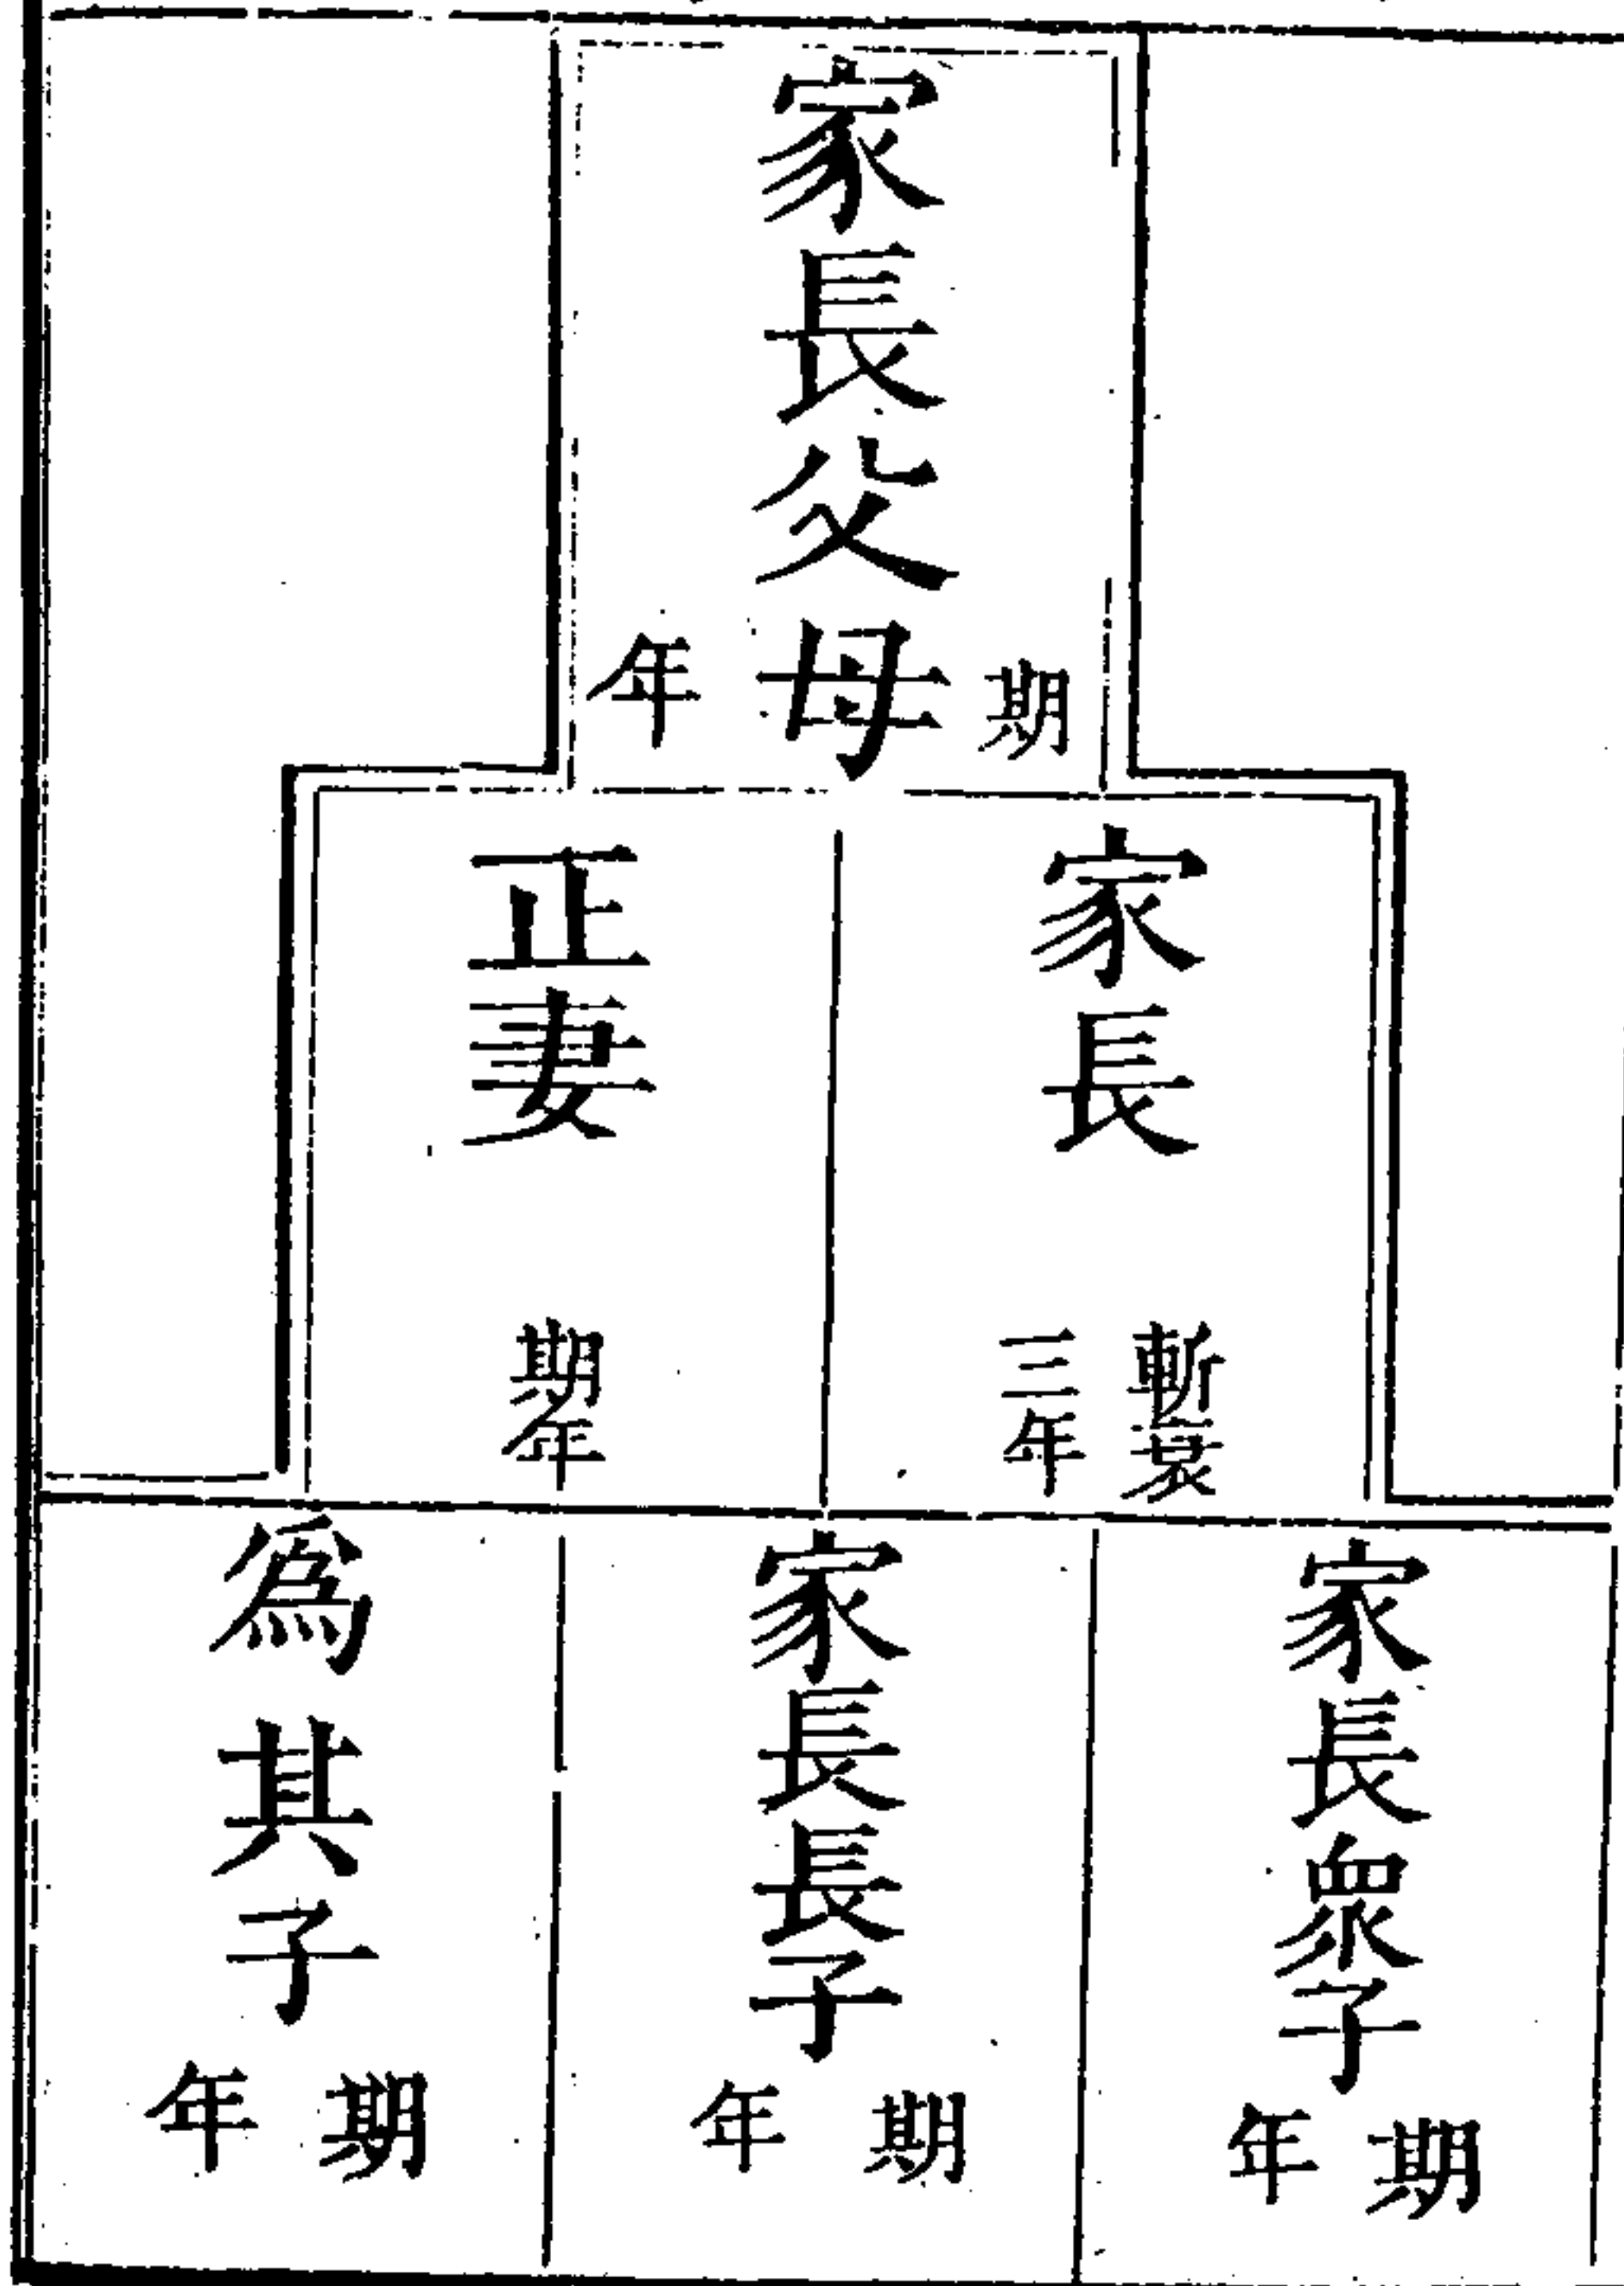 家長父母
期年
家長
斬衰
三年
正妻
期年
家長衆子
期年
家長長子
期年
爲其子
期年